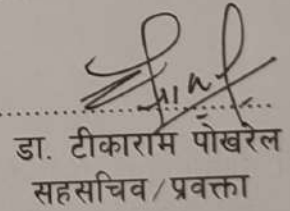 डा. टीकाराम पोखरेल
सहसचिव/प्रवक्ता